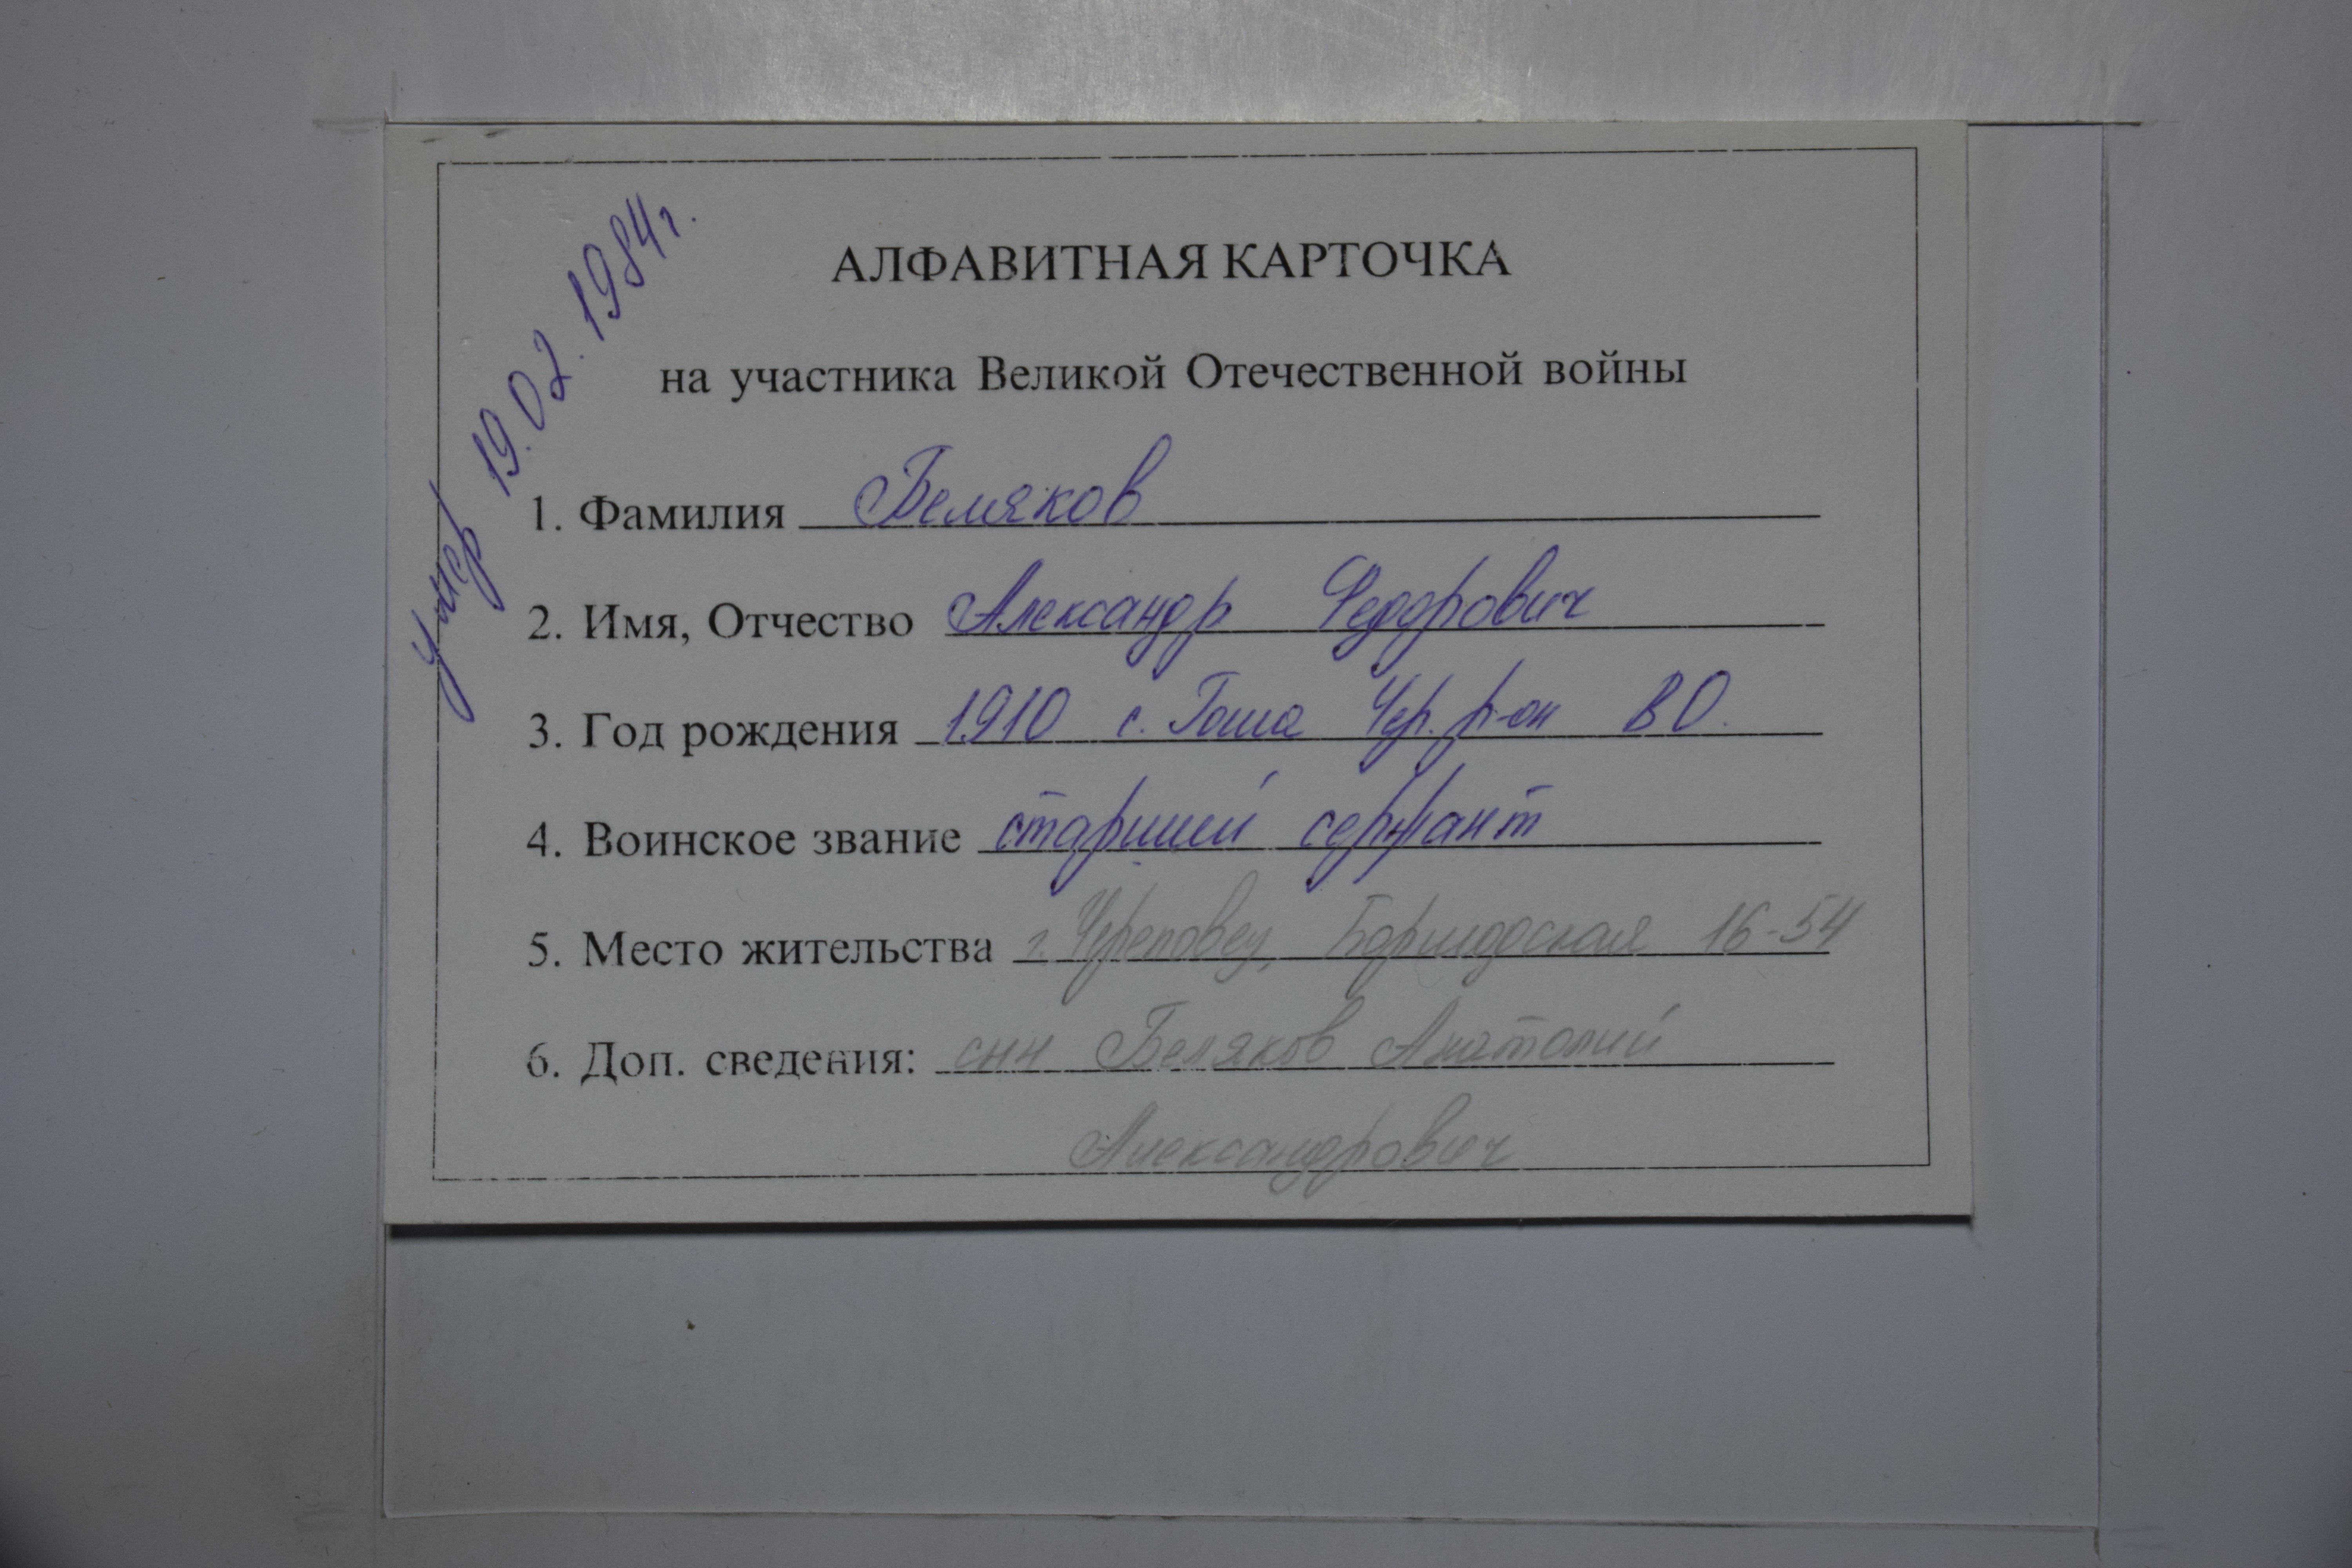 умер 19.02.1984г.
АЛФАВИТНАЯ КАРТОЧКА
на участника Великой Отечественной войны
1. Фамилия Беляков
2. Имя, Отчество Александр Федорович
3. Год рождения 1910 с. Гоша Чер. р-он ВО.
4. Воинское звание старший сержант
5. Место жительства г. Череповец, Боршодская 16-54
6. Доп. сведения: сын Беляков Анатолий
Александрович